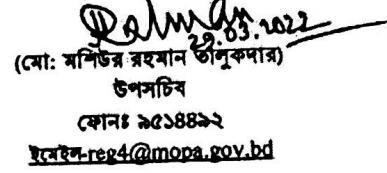 Rahman
29.03.2022
(মো: মশিউর রহমান তালুকদার)
উপসচিব
ফোনঃ ৯৫১৪৪৯২
ইমেইল-reg4@mopa.gov.bd